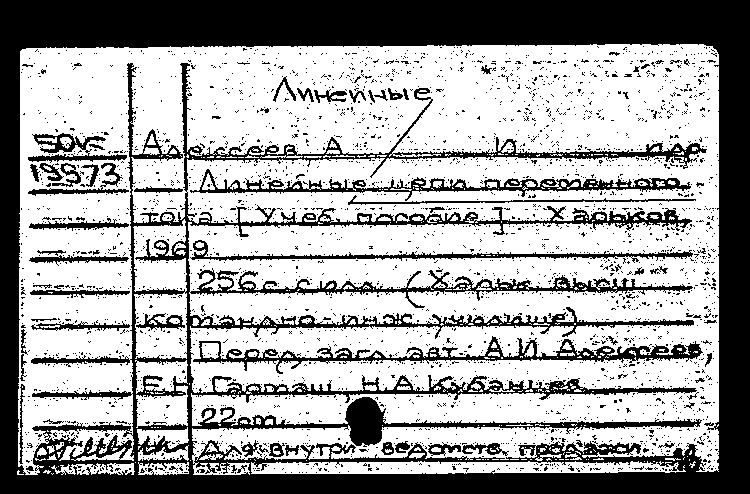 Линейные
Алексеев А И идр
19973
Линейные цепи переменного
тока [Учеб. пособие]. Харьков,
1969
256с. с илл. (Харьк высш
командно-инж училище)
Перед загл авт: А.И. Алексеев,
Е.Н Гарташ, Н.А Кубанцев
22cm.
Для внутри- ведомств. продажи.